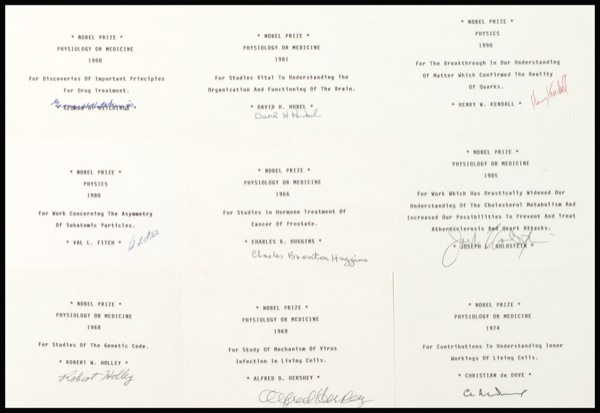 * NOBEL PRIZE *
PHYSIOLOGY OR MEDICINE
1988
For Discoveries Of Important Principles
For Drug Treatment.
* GEORGE H. HITCHINGS *
* NOBEL PRIZE *
PHYSIOLOGY OR MEDICINE
1981
For Studies Vital To Understanding The
Organization And Functioning Of The Brain.
* DAVID H. HUBEL *
David H Hubel
* NOBEL PRIZE *
PHYSICS
1990
For The Breakthrough In Our Understanding
Of Matter Which Confirmed The Reality
Of Quarks.
* HENRY W. KENDALL *
Henry Kendall
* NOBEL PRIZE *
PHYSICS
1980
For Work Concerning The Asymmetry
Of Subatomic Particles.
* VAL L. FITCH *
* NOBEL PRIZE *
PHYSIOLOGY OR MEDICINE
1966
For Studies In Hormone Treatment Of
Cancer Of Prostate.
* CHARLES B. HUGGINS *
Charles Brenton Huggins
* NOBEL PRIZE *
PHYSIOLOGY OR MEDICINE
1985
For Work Which Has Drastically Widened Our
Understanding Of The Cholesterol Metabolism And
Increased Our Possibilities To Prevent And Treat
Atherosclerosis And Heart Attacks.
* JOSEPH L. GOLDSTEIN *
* NOBEL PRIZE *
PHYSIOLOGY OR MEDICINE
1968
For Studies Of The Genetic Code.
* ROBERT W. HOLLEY *
Robert Holley
* NOBEL PRIZE *
PHYSIOLOGY OR MEDICINE
1969
For Study Of Mechanism Of Virus
Infection In Living Cells.
* ALFRED D. HERSHEY *
Alfred Hershey
* NOBEL PRIZE *
PHYSIOLOGY OR MEDICINE
1974
For Contributions To Understanding Inner
Workings Of Living Cells.
* CHRISTIAN de DUVE *